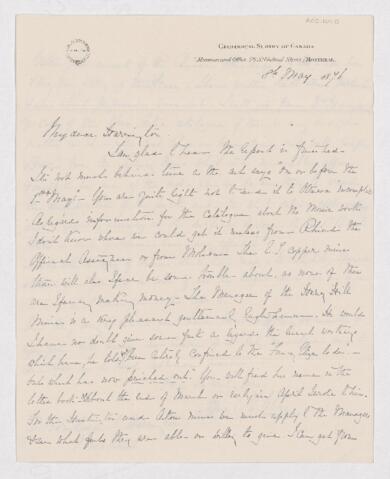 GEOLOGICAL SURVEY OF CANADA
Museum and Office, 76 St. Gabriel Street, MONTREAL,
8th May 1876
My dear Harrington
I am glad to hear the Report is finished.
It is not much behind time as the act says "on or before the
1st May". You are quite right not to send it to Ottawa incomplete
As regards information for the catalogue about the mines worth
I don't know where we could get it unless from the
Official Assignee or from The E.T. copper mines
there will also I fear be some trouble about, as none of them
are I fear making money. The Manager of the Harvey Hill
Mines is a very pleasant gentlemanly Englishman. He would
I have no doubt give some facts as regards the recent workings
which have, he told me, been entirely confined to the "Fanny Eliza lode"
but which has now "pinched out". You will find his name in the
letter book. About the end of March or early in April I wrote to him.
For the Huntington and Acton mines we must apply to the Managers
& see what facts they are able or willing to give. I can get from